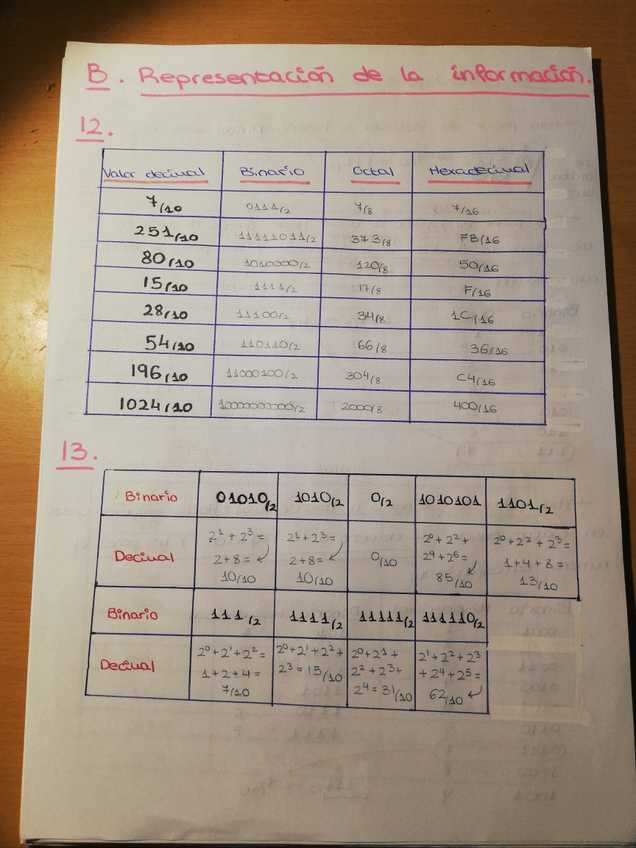 B. Representación de la información.
12.
Valor decimal Binario Octal Hexadecimal
7/10 0111/2 7/8 7/16
251/10 11111011/2 373/8 FB/16
80/10 1010000/2 120/8 50/16
15/10 1111/2 17/8 F/16
28/10 11100/2 34/8 1C/16
54/10 110110/2 66/8 36/16
196/10 11000100/2 304/8 C4/16
1024/10 10000000000/2 2000/8 400/16
13.
Binario 01010/2 1010/2 0/2 1010101 1101/2
2¹ + 2³ = 2¹ + 2³ = 2⁰ + 2² + 2⁰ + 2² + 2³ =
Decimal 2 + 8 = 2 + 8 = 0/10 2⁴ + 2⁶ = 1 + 4 + 8 =
10/10 10/10 85/10 13/10
Binario 111/2 1111/2 11111/2 111110/2
2⁰ + 2¹ + 2² = 2⁰ + 2¹ + 2² + 2⁰ + 2¹ + 2¹ + 2² + 2³
Decimal 1 + 2 + 4 = 2³ = 15/10 2² + 2³ + + 2⁴ + 2⁵ =
7/10 2⁴ = 31/10 62/10